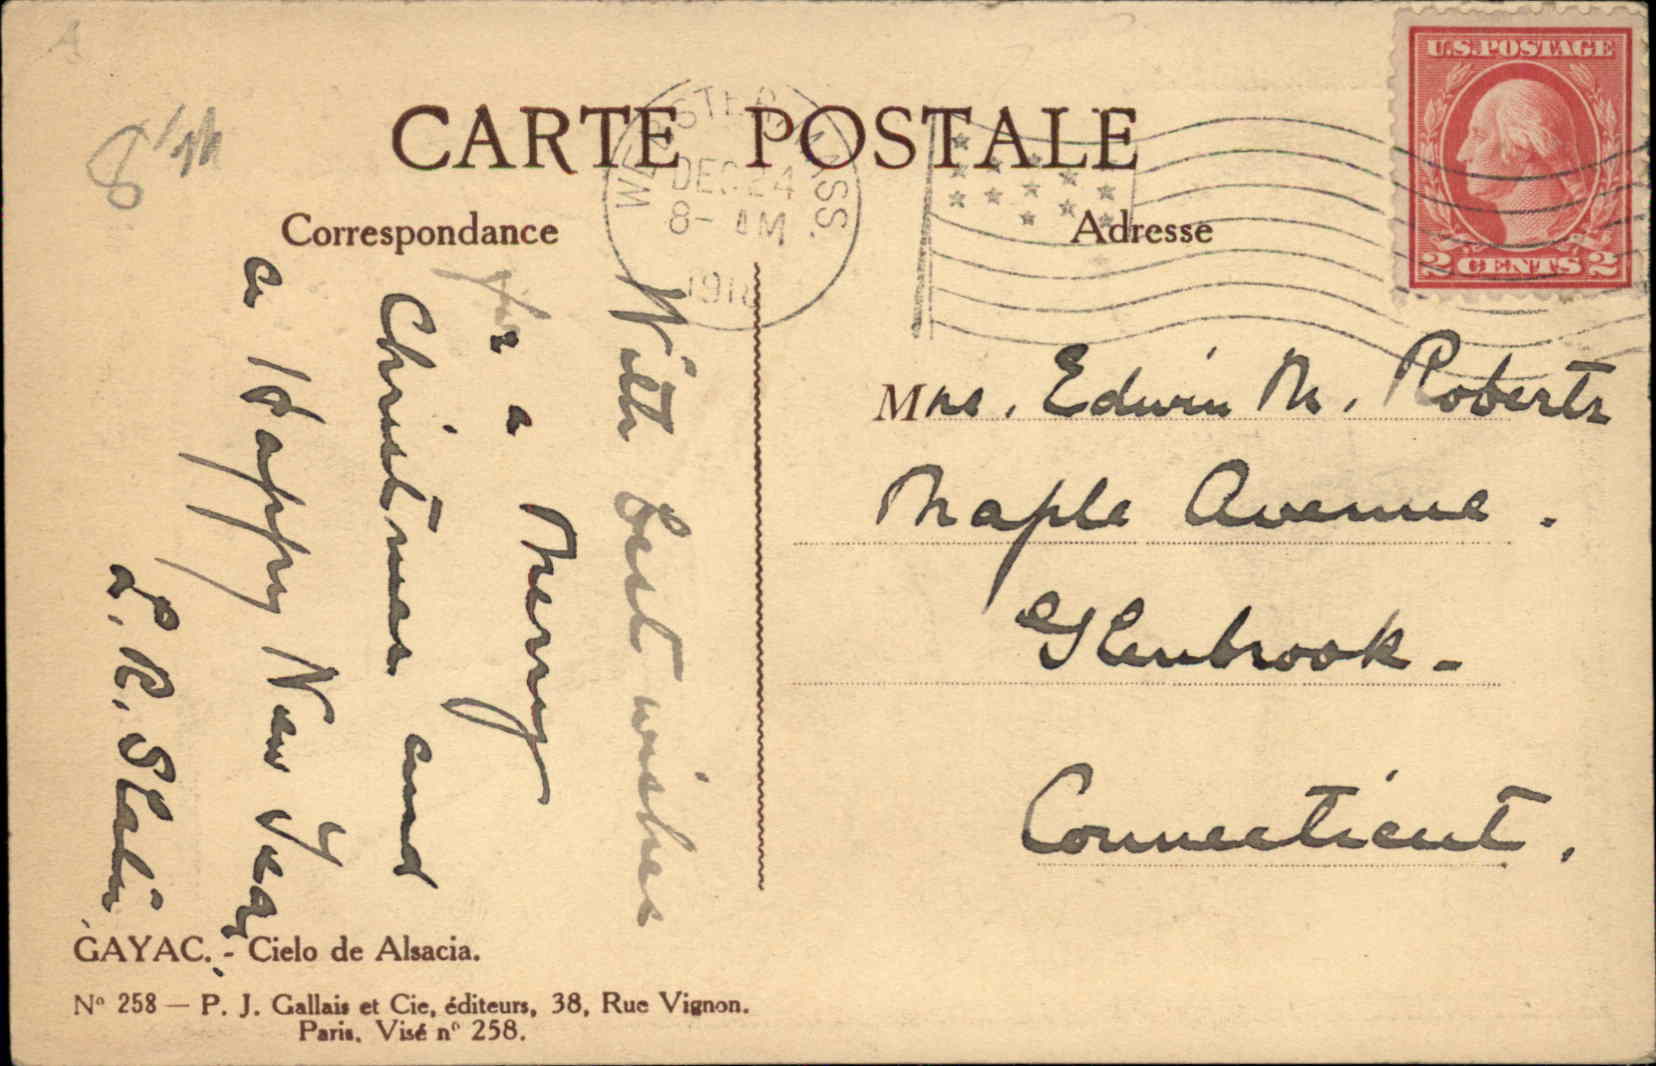 CARTE POSTALE
Correspondance
Adresse
U.S. POSTAGE
2 CENTS 2
MASS.
DEC 24
8- AM
With best wishes
for a Merry
Christmas and
a Happy New Year
L. R. Sladin
Mrs. Edwin M. Roberts
Maple Avenue.
Glenbrook-
Connecticut.
GAYAC. - Cielo de Alsacia.
Nº 258 — P. J. Gallais et Cie, éditeurs, 38, Rue Vignon.
Paris. Visé nº 258.